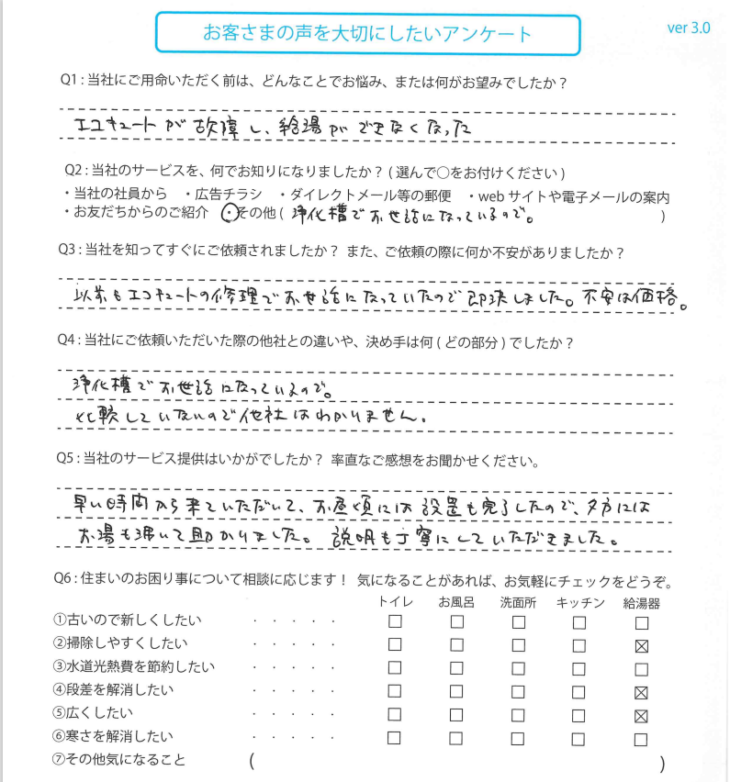 お客さまの声を大切にしたいアンケート
ver 3.0
Q1 : 当社にご用命いただく前は、どんなことでお悩み、または何がお望みでしたか？
エコキュートが故障し、給湯ができなくなった
Q2 : 当社のサービスを、何でお知りになりましたか？ ( 選んで○をお付けください )
・当社の社員から ・広告チラシ ・ダイレクトメール等の郵便 ・web サイトや電子メールの案内
・お友だちからのご紹介 ・その他 ( 浄化槽でお世話になっているので。 )
Q3 : 当社を知ってすぐにご依頼されましたか？ また、ご依頼の際に何か不安がありましたか？
以前もエコキュートの修理でお世話になっていたので即決しました。不安は価格。
Q4 : 当社にご依頼いただいた際の他社との違いや、決め手は何 ( どの部分 ) でしたか？
浄化槽でお世話になっているので。
比較していないので他社はわかりません。
Q5 : 当社のサービス提供はいかがでしたか？ 率直なご感想をお聞かせください。
早い時間から来ていただいて、お昼頃には設置も完了したので、夕方には
お湯も沸いて助かりました。説明も丁寧にしていただきました。
Q6 : 住まいのお困り事について相談に応じます！ 気になることがあれば、お気軽にチェックをどうぞ。
トイレ お風呂 洗面所 キッチン 給湯器
①古いので新しくしたい ・・・・・ □ □ □ □ □
②掃除しやすくしたい ・・・・・ □ □ □ □ ☒
③水道光熱費を節約したい ・・・・・ □ □ □ □ □
④段差を解消したい ・・・・・ □ □ □ □ ☒
⑤広くしたい ・・・・・ □ □ □ □ ☒
⑥寒さを解消したい ・・・・・ □ □ □ □ □
⑦その他気になること ( )